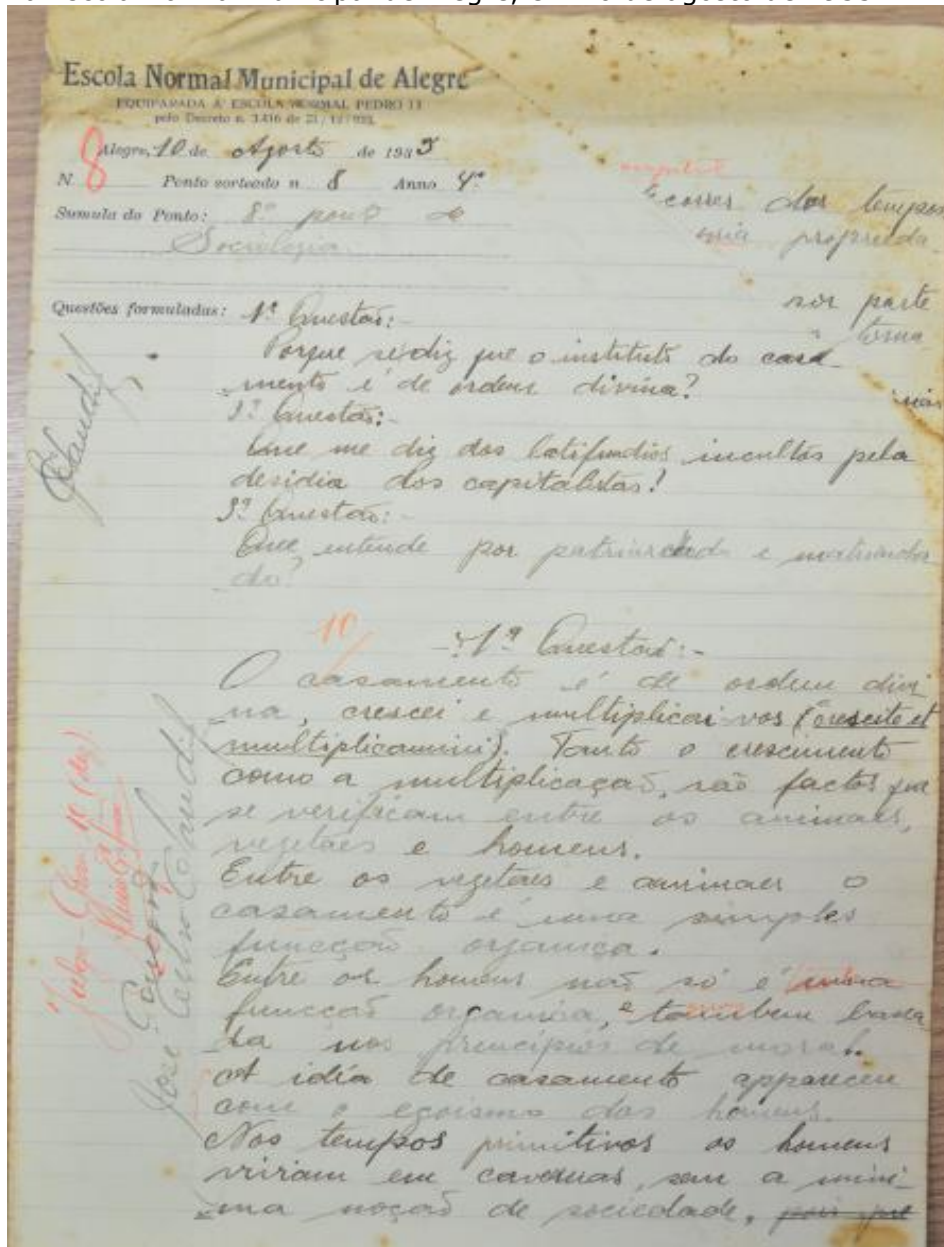 Escola Normal Municipal de Alegre
EQUIPARADA A' ESCOLA NORMAL PEDRO II
pelo Decreto n. 3.416 de 21/12/933
8
Alegre, 10 de Agosto de 1935
N. Ponto sorteado n 8 Anno 4º
Sumula do Ponto: 8º ponto de
Sociologia
correr dos tempos
uma propreeda
por parte
Questões formuladas: 1ª Questão:-
Porque se diz que o instituto do casa-
mento é de ordem divina?
2ª Questão:-
Que me diz dos latifundios incultos pela
desidia dos capitalistas?
3ª Questão:-
Que entende por patriarchado e matriarcha
do?
10
-:1ª Questão:-
O casamento é de ordem divi
na, crescei e multiplicai-vos (crescite et
multiplicamini). Tanto o crescimento
como a multiplicação, são factos que
se verificam entre os animaes,
vegetaes e homens.
Entre os vegetaes e animaes o
casamento é uma simples
funcção organica.
Entre os homens não só é uma
funcção organica, e tambem basea
da nos principios de moral.
A idéa de casamento appareceu
com o egoismo dos homens.
Nos tempos primitivos os homens
viviam em cavernas, sem a mini-
ma noção de sociedade, pois que